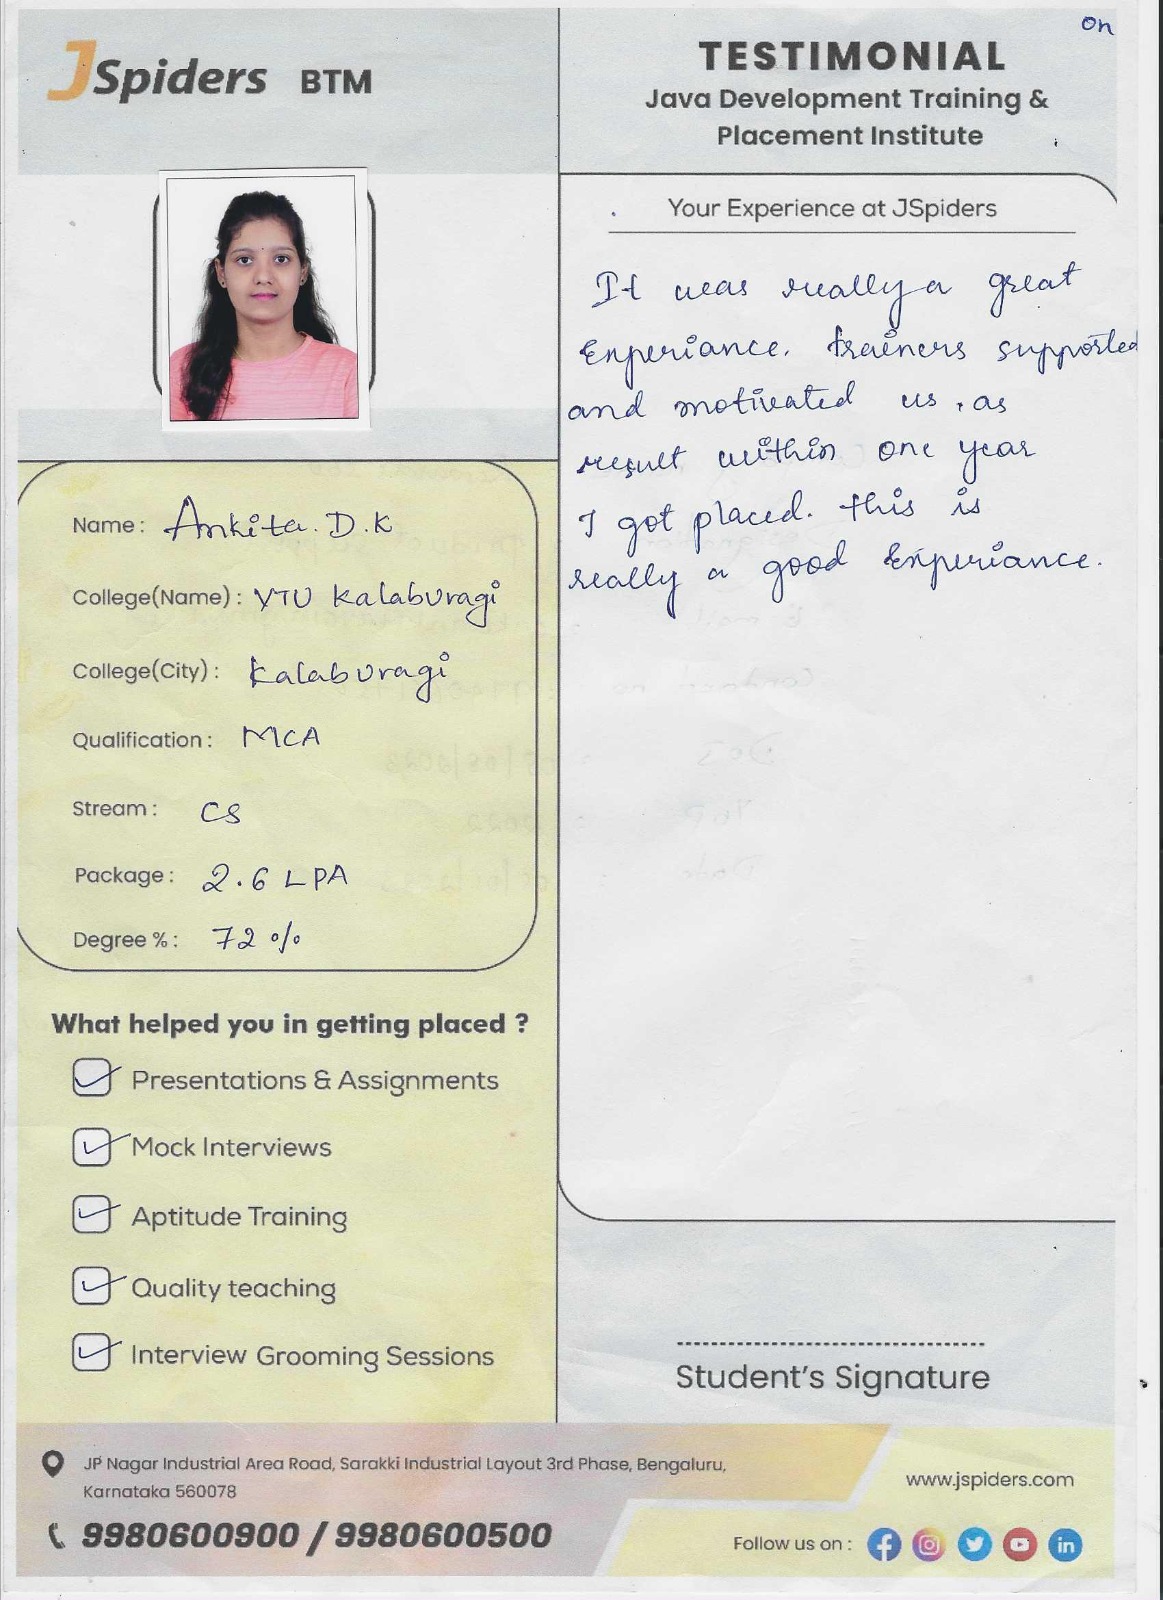 JSpiders BTM
On
TESTIMONIAL
Java Development Training &
Placement Institute
Your Experience at JSpiders
It was really a great
Experiance. trainers supported
and motivated us, as
result within one year
I got placed. this is
really a good Experiance.
Name : Ankita. D. K
College(Name) : VTU Kalaburagi
College(City) : Kalaburagi
Qualification : MCA
Stream : CS
Package : 2.6 LPA
Degree % : 72 %
What helped you in getting placed ?
Presentations & Assignments
Mock Interviews
Aptitude Training
Quality teaching
Interview Grooming Sessions
Student's Signature
JP Nagar Industrial Area Road, Sarakki Industrial Layout 3rd Phase, Bengaluru,
Karnataka 560078
9980600900 / 9980600500
www.jspiders.com
Follow us on :